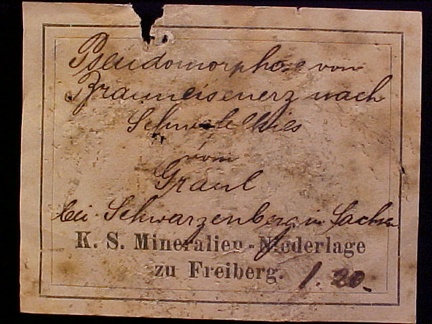 Pseudomorphose von
Brauneisenerz nach
Schwefelkies
vom
Graul
bei Schwarzenberg in Sachsen
K. S. Mineralien-Niederlage
zu Freiberg. 1.20.